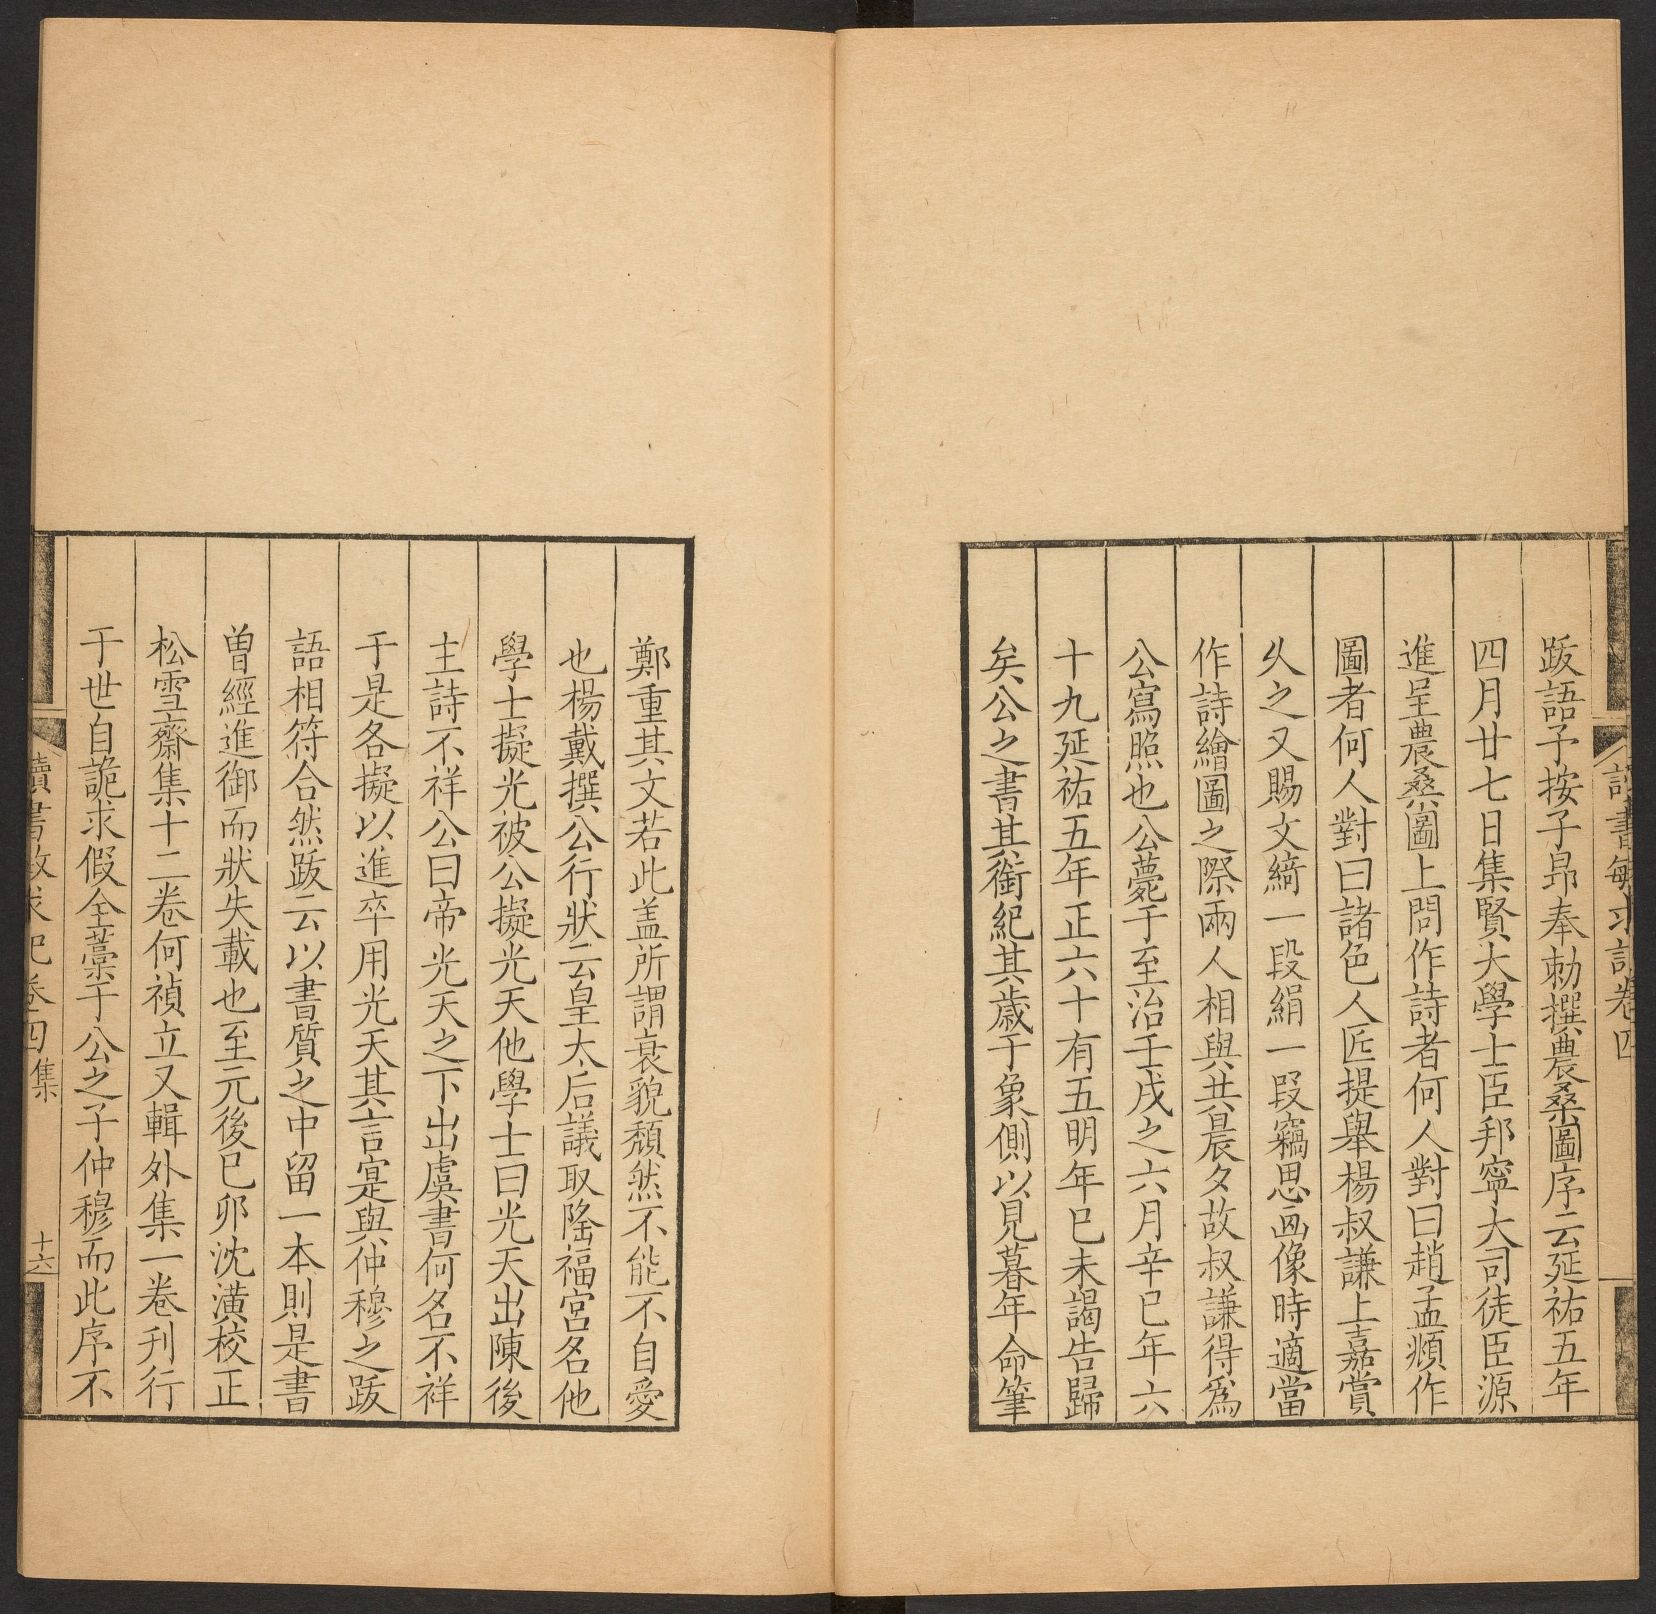 讀書敏求記卷四
跋語予按子昻奉勅撰農桑圖序云延祐五年
四月廿七日集賢大學士臣邦寧大司徒臣源
進呈農桑圖上問作詩者何人對曰趙孟頫作
圖者何人對曰諸色人匠提舉楊叔謙上嘉賞
久之又賜文綺一段絹一段竊思画像時適當
作詩繪圖之際兩人相與共晨夕故叔謙得爲
公寫照也公薨于至治壬戌之六月辛巳年六
十九延祐五年正六十有五明年已未謁告歸
矣公之書其銜紀其歳于象側以見暮年命筆
鄭重其文若此盖所謂衰貌頽然不能不自愛
也楊戴撰公行狀云皇太后議取隆福宮名他
學士擬光被公擬光天他學士曰光天出陳後
主詩不祥公曰帝光天之下出虞書何名不祥
于是各擬以進卒用光天其言寔與仲穆之跋
語相符合然跋云以書質之中留一本則是書
曽經進御而狀失載也至元後已夘沈潢校正
松雪齋集十二卷何禎立又輯外集一卷刋行
于世自詭求假全藁于公之子仲穆而此序不
讀書敏求記卷四集
十六